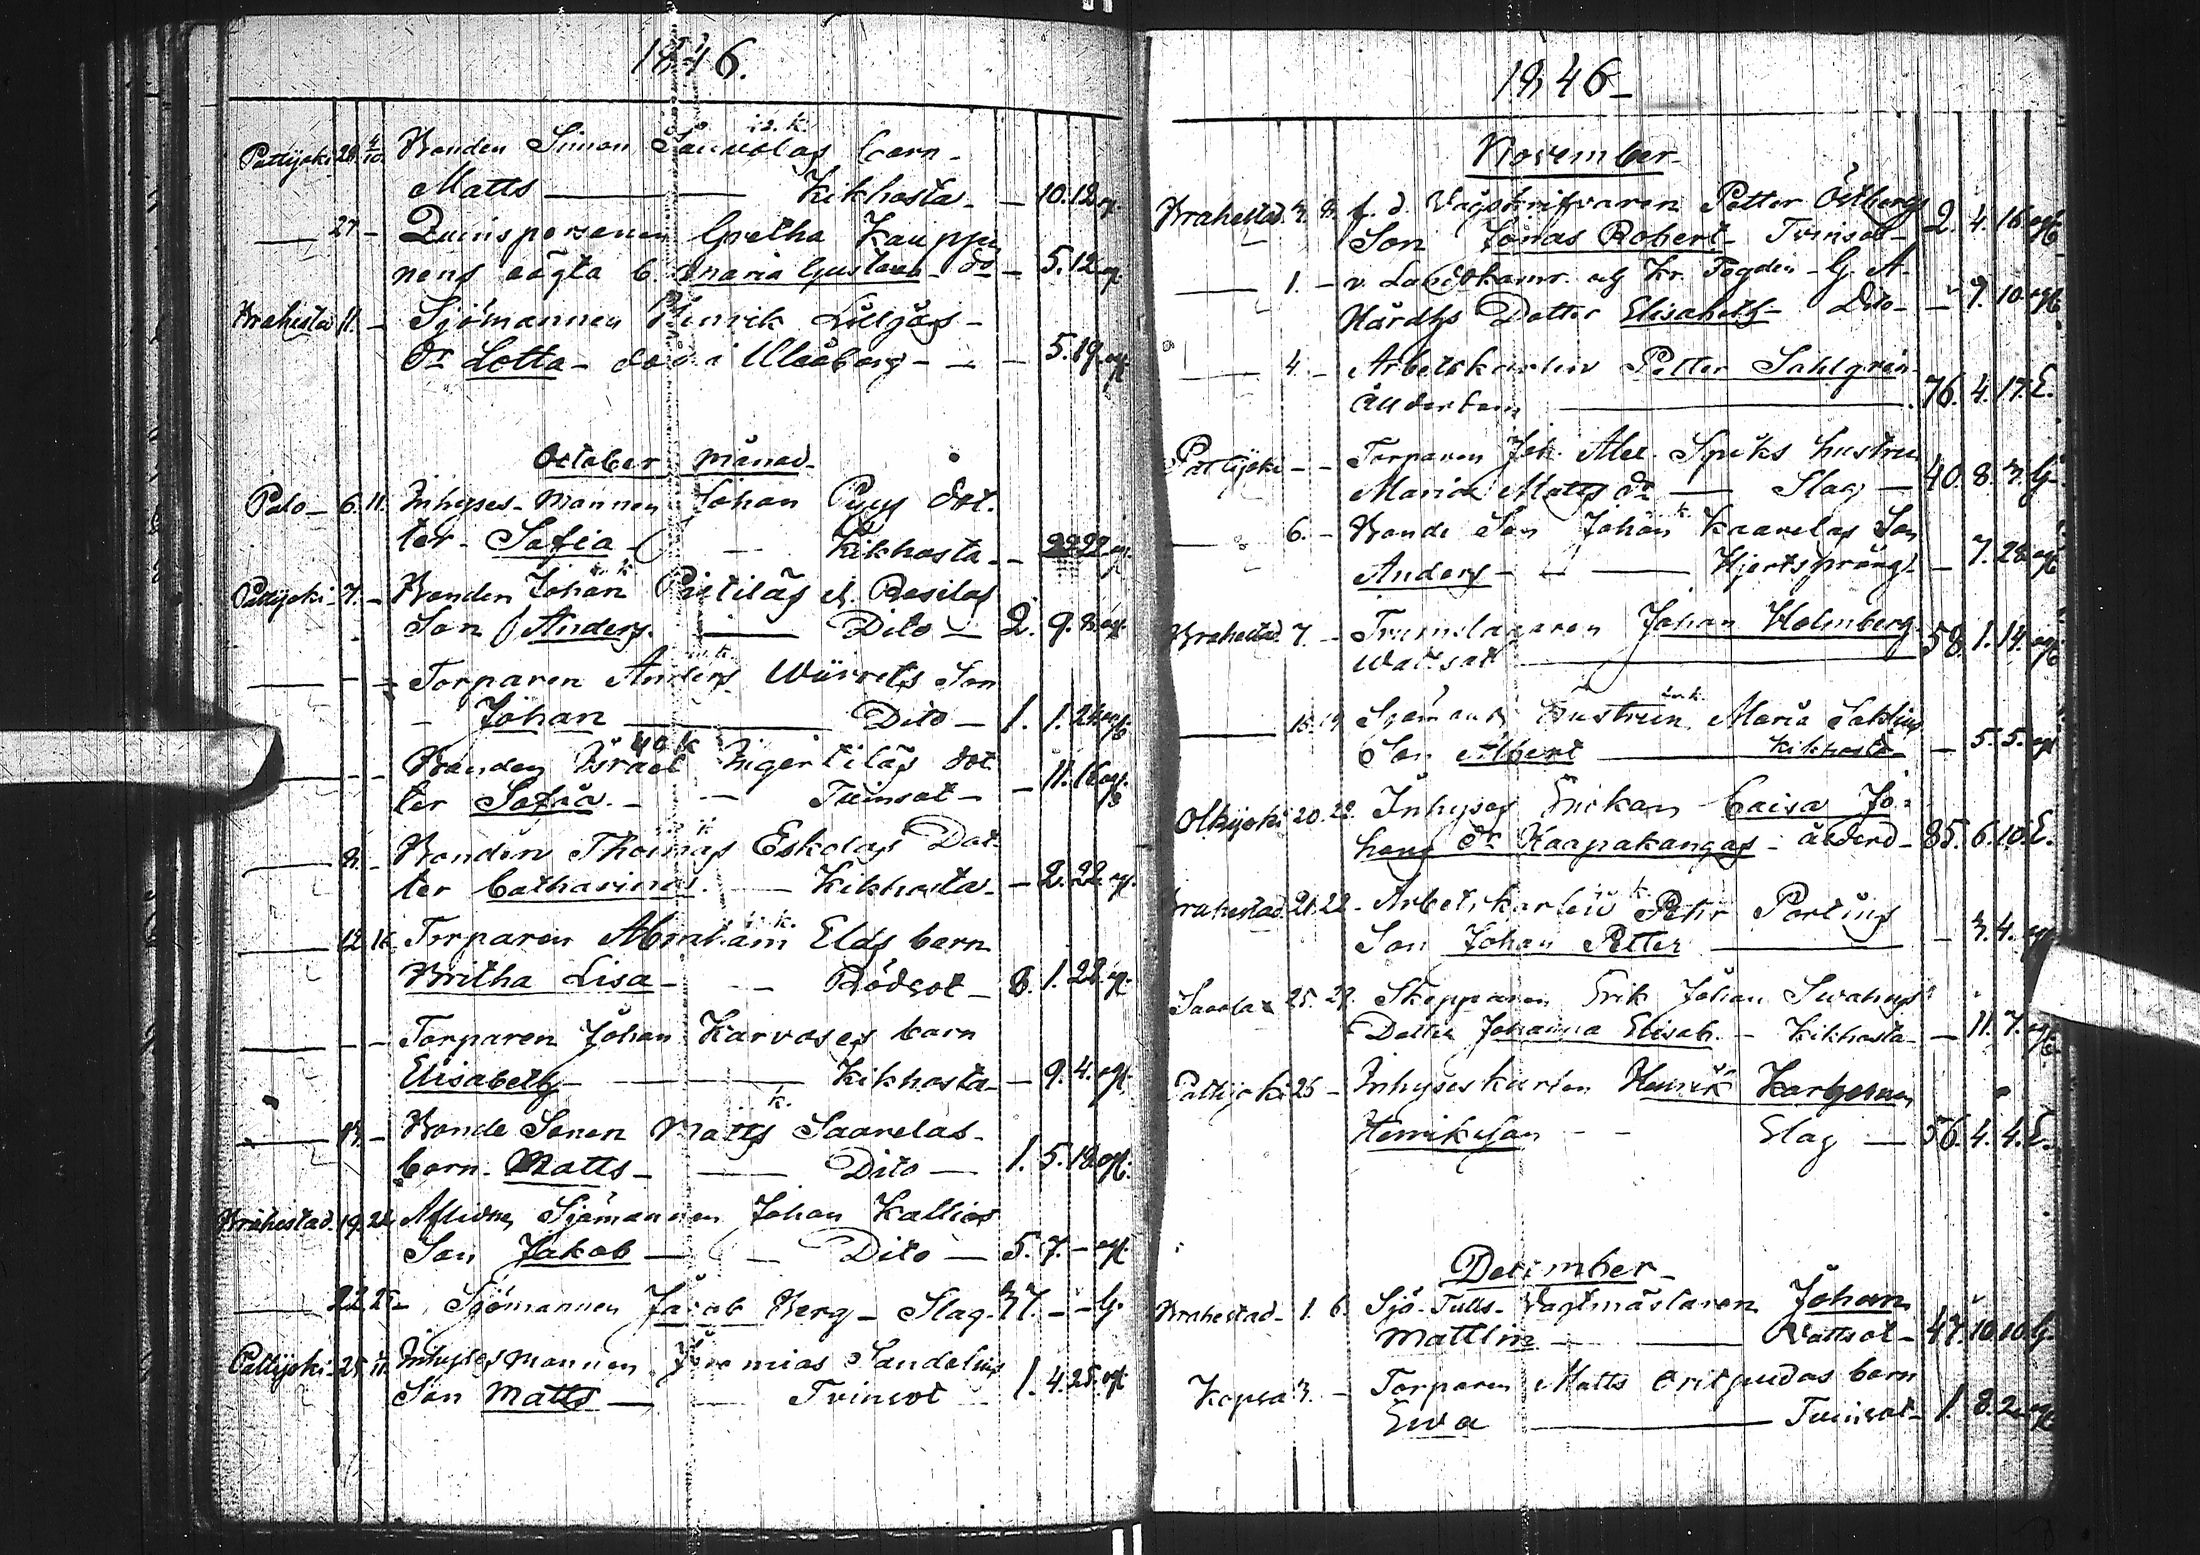 1846.
Pattijoki 28. 4/10. Bonden Simon Saarelas barn
Matts — Kikhosta — 10. 12 og.
— 27 — Qvinspersonen Gretha Kauppi
nens oägta b. Maria Gustava — do — 5. 12 og.
Brahestad 11. — Sjömannen Henrik Liljas
dr Lotta — död i Uleåborg — 5. 19 og.
October månad
Palo — 6. 11. Inhyses-Mannen Johan Pyys dot
ter Sofia — Kikhosta — 22 og.
Pattijoki 7. — Bonden Johan Pietiläs el. Basilas
Son Anders — Dito — 2. 9. 8. og.
Torparen Anders Wiirrets Son
Johan — Dito — 1. 1. 24 og.
Bonden Israel Ingertiläs dot
ter Sofia — Tvinsot — 11. 16 og.
— 8. — Bonden Thomas Eskolas Dot
ter Catharina — Kikhosta — 2. 22 og.
— 12. 18. Torparen Abraham Elas barn
Britha Lisa — Rödsot — 8. 1. 22. og.
Torparen Johan Karvoses barn
Elisabeth — Kikhosta — 9. 4. og.
Bonde Sonen Matts Saarelas
barn Matts — Dito — 1. 5. 18 og.
Brahestad 19. 24 Aflidne Sjömannen Johan Kallios
Son Jakob — Dito — 5. 7. — og.
— 22 25 — Sjömannen Jacob Berg — Slag. 37. — — G.
Pattijoki 25. Inhyses Mannen Jeremias Sandelins
Son Matts — Tvinsot 1. 4. 25. og.
1846
November
Brahestad 3. 8. f. d. Vågskrifvaren Petter Östbergs
Son Jonas Robert — Tvinsot — 2. 4. 16 og.
— 1. — v. Landtkamr. og Kr. Fogden G. A.
Hårdhs Dotter Elisabeth — Dito — 9. 10. og.
— 4. — Arbetskarlen Petter Sahlgren
Ålderdom — 76. 4. 17. E.
Pattijoki — — Torparen Joh. Alex. Spiks hustru
Maria Matts dr — Slag — 40. 8. 3. G.
— 6. — Bonde Son Johan Kaarelas Son
Anders — Hjertsprång — 7. 28 og.
Brahestad 7. — Trumslagaren Johan Holmberg
Wattsot — 58. 1. 14. og.
— 15. 19 Sjömans Enkan Maria Sahlins
Son Albert — Kikhosta — 5. 5. og.
Olkijoki 20. 22. Inhyses Enkan Caisa Jo=
hans dr Haapakangas — ålderd — 85. 6. 10. E.
Brahestad 21. 22. Arbetskarlen Petr Portins
Son Johan Petter — 3. 4. og.
Savola 25. 29. Skepparen Erik Johan Swahns
Dotter Johanna Elisab. — Kikhosta — 11. 7. og.
Pattijoki 25 — Inhyseskarlen Henrik Karhunen
Henriksson — Slag — 56. 4. 4. E.
December
Brahestad — 1. 6. Sjö-Tulls-Vagtmästaren Johan
Mattlin — Vattsot — 47. 10. 10 G.
Kopsa 3. — Torparen Matts Oritpudas barn
Ewa — Tvinsot — 1. 8. 2 og.